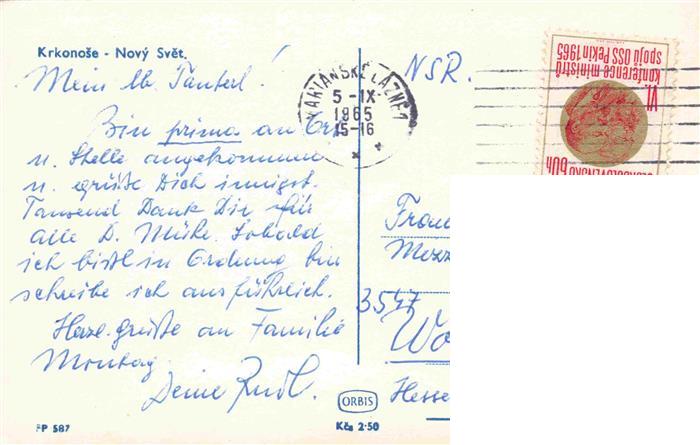 Krkonoše - Nový Svět.
Mein lb. Tanterl!
Bin prima an Ort
u. Stelle angekommen
u. grüße Dich innigst.
Tausend Dank Dir für
alle D. Mühe. Sobald
ich bissl in Ordnung bin
schreibe ich ausführlich.
Herzl. grüße an Familie
Montag.
Deine Rudl.
FP 587
ORBIS
Kčs 2·50
NSR.
MARIÁNSKÉ LÁZNĚ 1
5 -IX
1965
15-16
VI.
konference ministrů
spojů OSS Pekin 1965
ČESKOSLOVENSKO 60h
Frau
Mezz
3547
Wo
Hesse